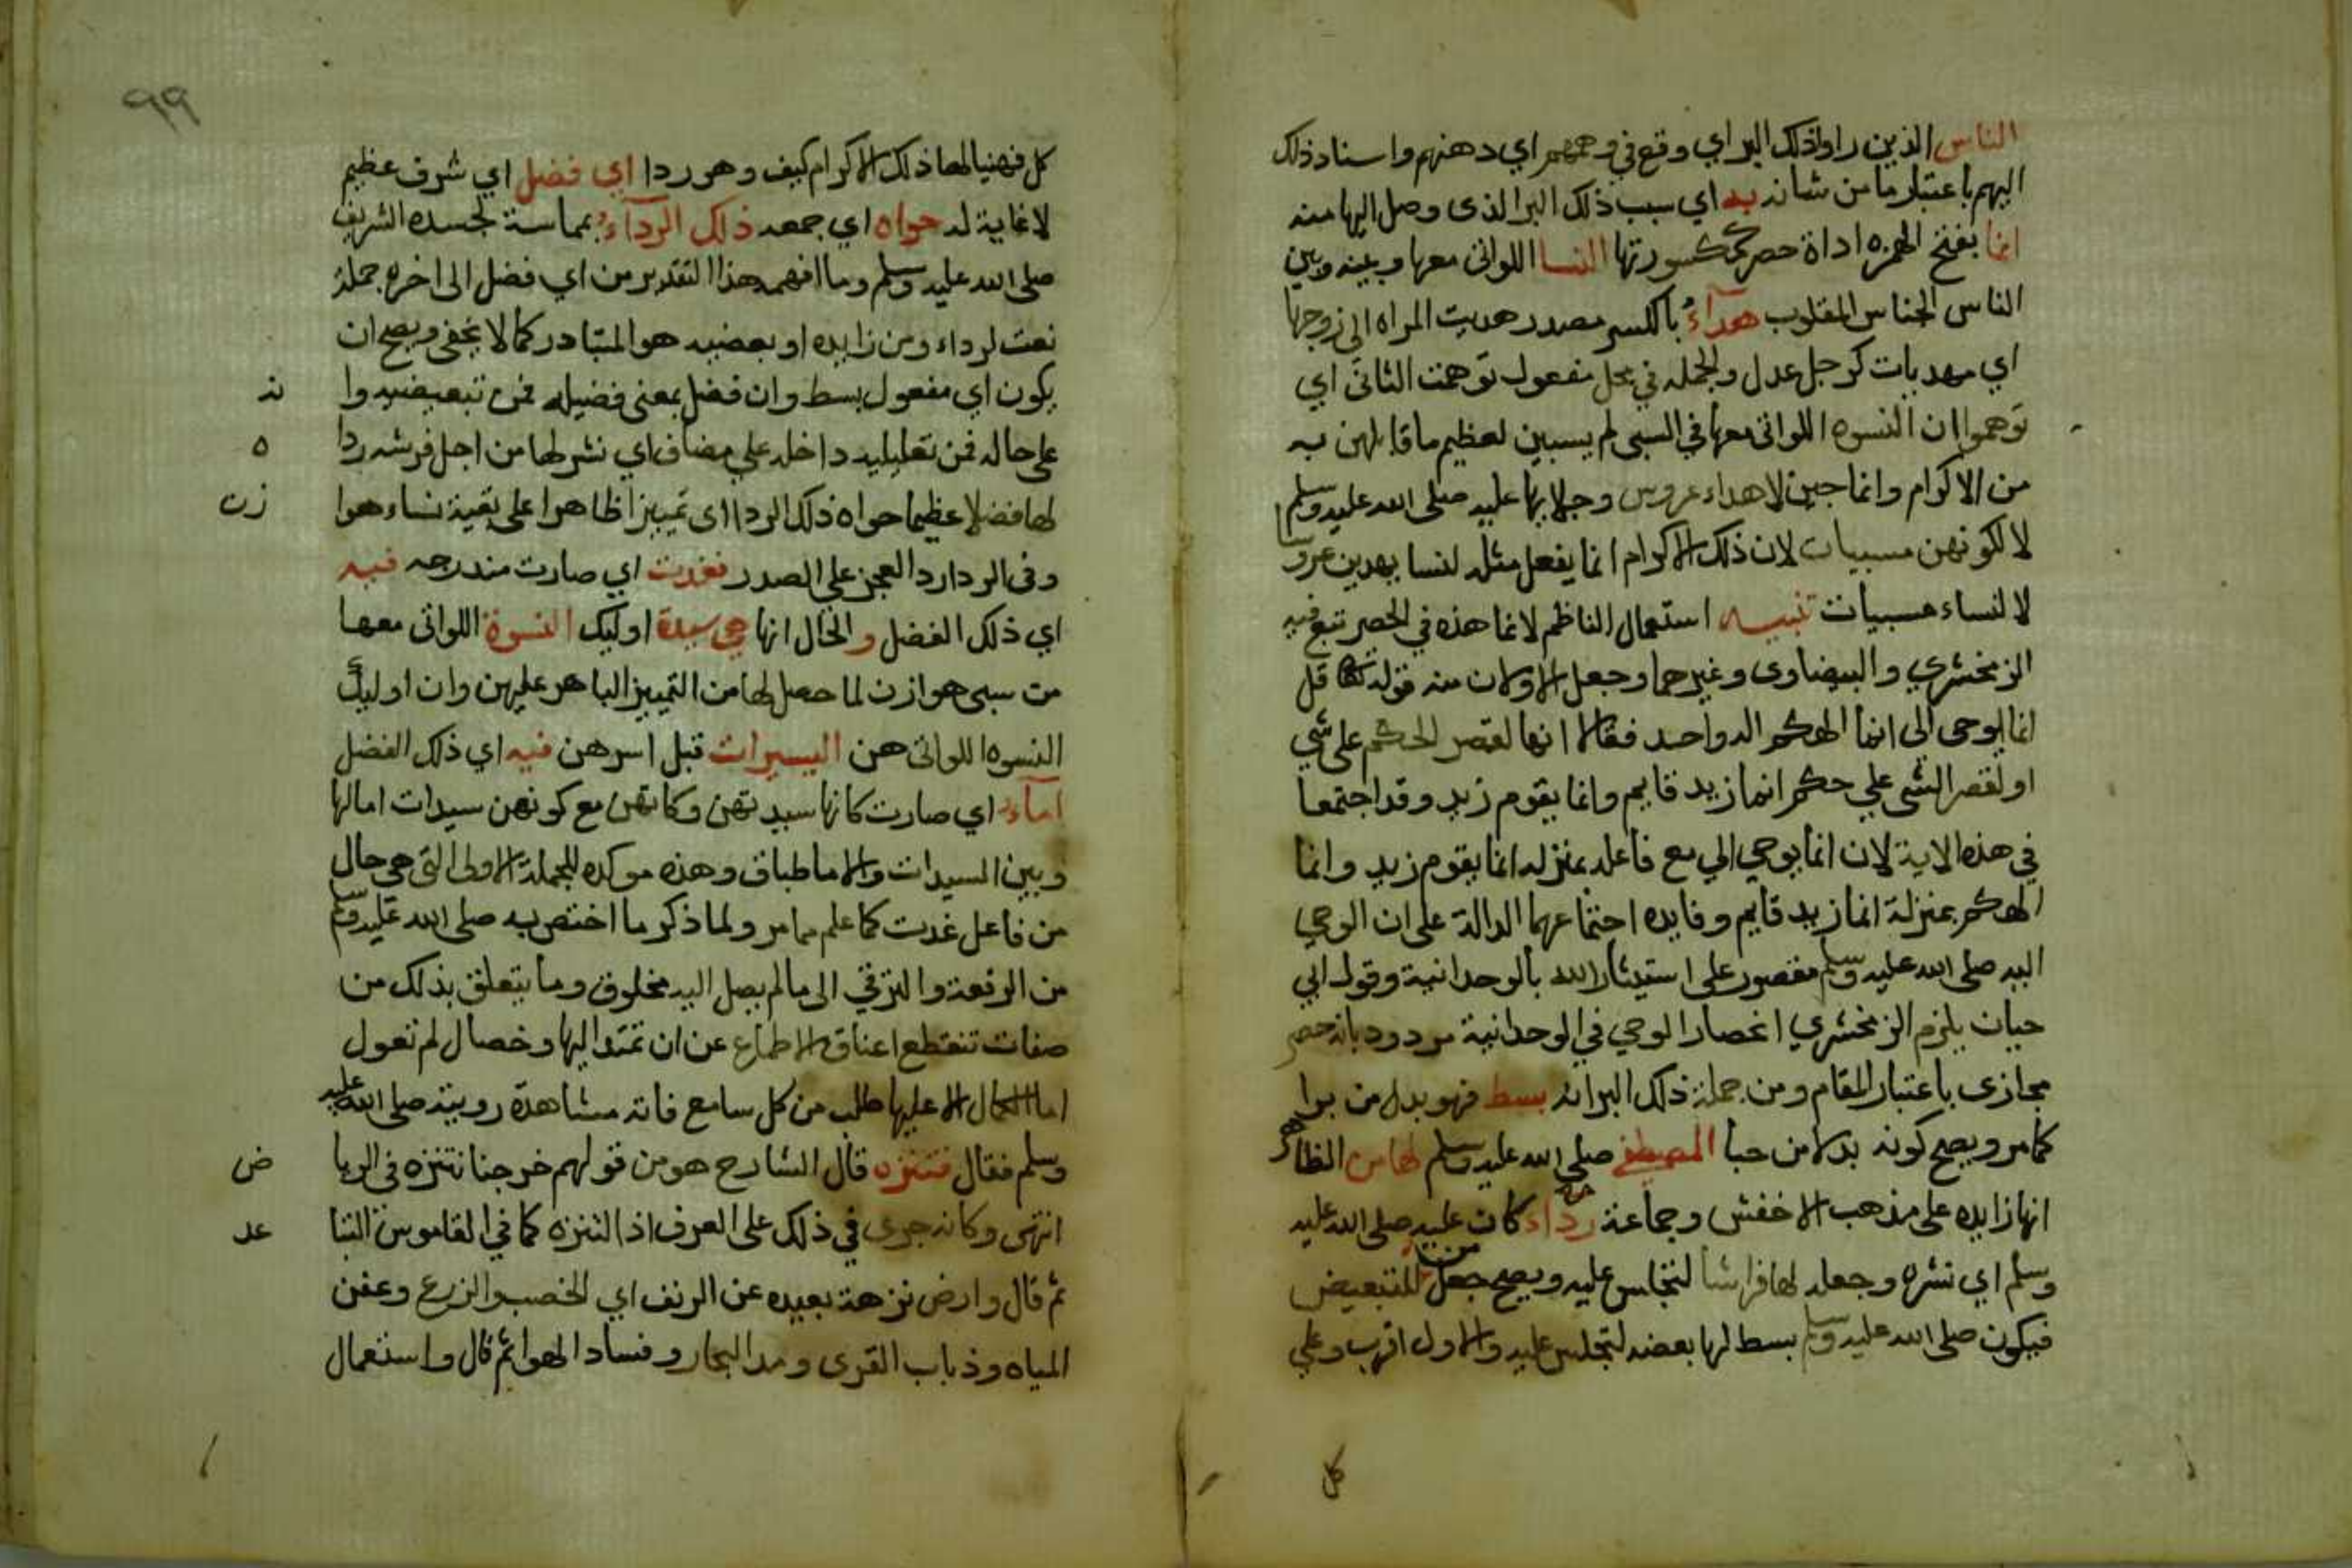 الناس الذين راوا ذلك البر اي وقع في وهمهم اي دهنهم واسناد ذلك
اليهم باعتبار ما من شانه به اي سبب ذلك البر الذى وصل اليها منه
انما بفتح الهمزه اداة حصر كمكسورتها النسا اللواتى معها وبينه وبين
الناس الجناس المقلوب هدآءُ بالكسر مصدر هديت المراه الى زوجها
اي مهديات كرجل عدل والجمله في محل مفعول توهمت الثانى اي
توهموا ان النسوه اللواتى معها في السبى لم يسبين لعظيم ما قابلهن به
من الاكرام وانما جين لاهداء عروس وجلايها عليه صلى الله عليه وسلم
لا لكونهن مسبيات لان ذلك الاكرام انما يفعل مثله لنسا يهدين عروسا
لا لنساء مسبيات تنبيه استعمال الناظم لانما هذه في الحصر تبع فيه
الزمخشري والبيضاوى وغيرهما وجعل الاولان منه قوله تعالى قل
انما يوحى الى انما الهكم اله واحد فقالا انها لقصر الحكم على شي
او لقصر الشى علي حكم انما زيد قايم وانما يقوم زيد وقد اجتمعا
في هذه الاية لان انما يوحي الي مع فاعله بمنزله انما يقوم زيد وانما
الهكم بمنزلة انما زيد قايم وفايده اجتماعهما الدالة على ان الوحي
اليه صلى الله عليه وسلم مقصور على استيثار الله بالوحدانية وقول ابي
حيان يلزم الزمخشري انحصار الوحي في الوحدانية مردود بانه حصر
مجازى باعتبار المقام ومن جملة ذلك البر انه بسط فهو بدل من برا
كما مر ويصح كونه بدلا من حبا المصطفى صلى الله عليه وسلم لها من الظاهر
انها زايده على مذهب الاخفش وجماعة رداء كان عليه صلى الله عليه
وسلم اي نشره وجعله لها فراشا لتجلس عليه ويصح جعل من للتبعيض
فيكون صلى الله عليه وسلم بسط لها بعضه لتجلس عليه والاول اقرب وعلي
كل
٩٩
كل فهنيا لها ذلك الاكرام كيف وهو ردا اي فضل اي شرف عظيم
لا غاية له حواه اي جمعه ذلك الردآءُ بمماسة لجسده الشريف
صلى الله عليه وسلم وما افهمه هذا التقدير من اي فضل الى اخره جملة
نعت لرداء ومن زايده او بعضيه هو المتبادر كما لا يخفى ويصح ان
يكون اي مفعول بسط وان فضل بمعنى فضيله فمن تبعيضيه وا ند
على حاله فمن تعليليه داخله علي مضاف اي نشر لها من اجل فرشه ردا ه
لها فضلا عظيما حواه ذلك الردا اى تمييزا ظاهرا على بقية نساء هوا زن
وفى الردا رد العجز على الصدر فغدت اي صارت مندرجه فيه
اي ذلك الفضل والحال انها هي سيدة اوليك النسوة اللواتى معها
من سبى هوازن لما حصل لها من التمييز الباهر عليهن وان اوليك
النسوه اللواتى هن السيدات قبل اسرهن فيه اي ذلك الفضل
امآءُ اي صارت كانها سيدتهن وكانهن مع كونهن سيدات اما لها
وبين السيدات والاما طباق وهذه موكده للجملة الاولى التى هي حال
من فاعل غدت كما علم مما مر ولما ذكر ما اختص به صلى الله عليه وسلم
من الرفعة والترقي الى ما لم يصل اليه مخلوق وما يتعلق بذلك من
صفات تنقطع اعناق الاطماع عن ان تمتد اليها وخصال لم تعول
اما الكمال الا عليها طلب من كل سامع فاته مشاهدة رويته صلى الله عليه
وسلم فقال فتنزه قال الشارح هو من قولهم خرجنا نتنزه فى الريا ض
انتهى وكانه جرى في ذلك على العرف اذ التنزه كما في القاموس التبا عد
ثم قال وارض نزهة بعيده عن الريف اي الخصب والزرع وعفن
المياه وذباب القرى ومد البحار وفساد الهوا ثم قال واستعمال